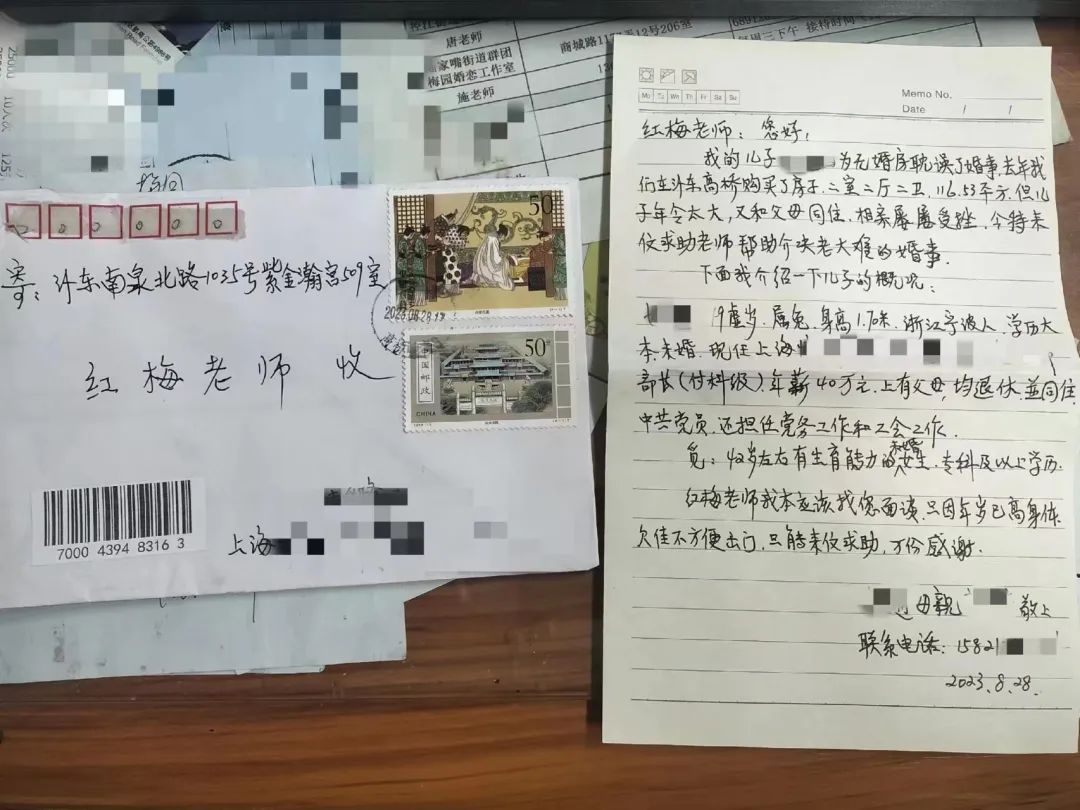 唐老师
商城路11 12号206室
周三下午 接待时间
家嘴街道群团
梅园婚恋工作室
施老师
50
2023.08.28
50
中国邮政
CHINA
寄:沪东南泉北路1025号紫金瀚宫509室
红梅老师 收
7000 4394 8316 3
上海
Memo No.
Mo Tu Wn Th Fr Sa Su
Date / /
红梅老师:您好,
我的儿子 为无婚房耽误了婚事去年我
们在沪东高桥购买了房子.二室二厅二卫,116.53平方.但儿
子年令太大,又和父母同住.相亲屡屡受挫.今特来
信求助老师帮助介决老大难的婚事.
下面我介绍一下儿子的概况:
9虚岁.属兔.身高1.70米.浙江宁波人.学历大
本.未婚.现任上海
部长(付科级)年薪40万元.上有父母,均退休.并同住.
中共党员.还担任党务工作和工会工作.
觅:42岁左右有生育能力的未婚女生.专科及以上学历.
红梅老师我本应该找您面谈.只因年岁已高身体
欠佳不方便出门.只能来信求助.万份感谢.
母亲 敬上
联系电话:15821
2023.8.28.